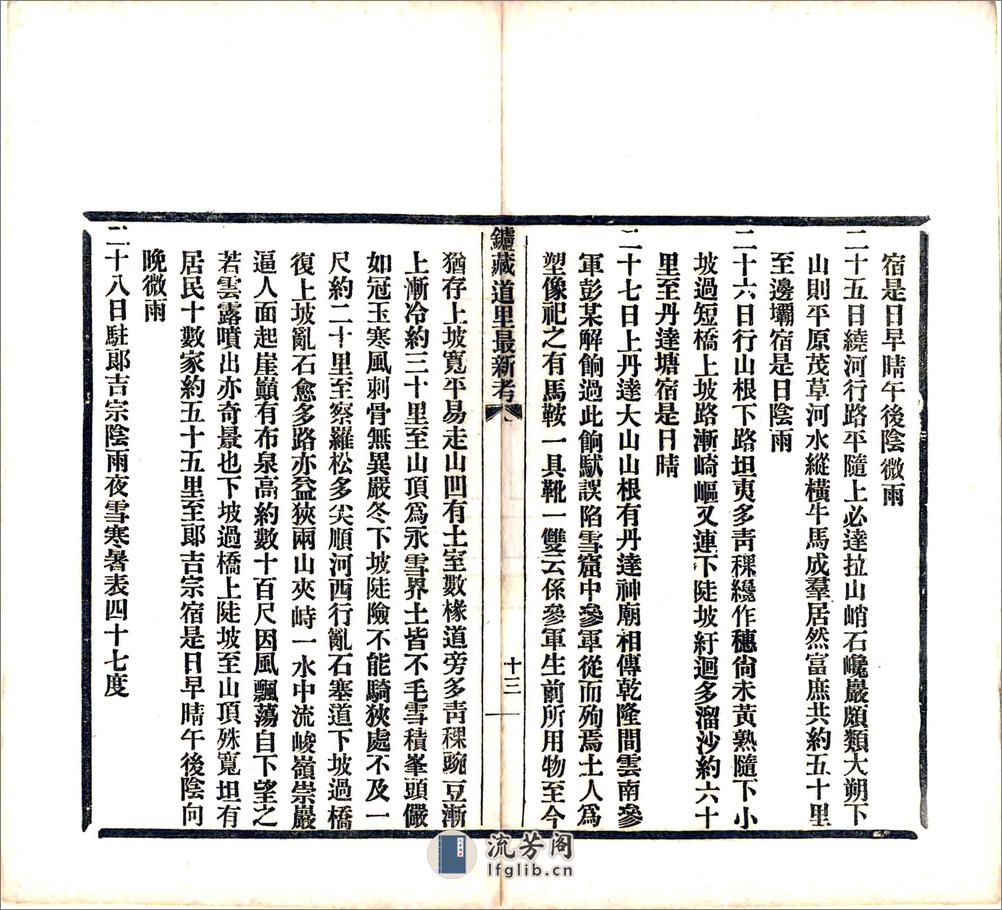 宿是日早晴午後陰微雨
二十五日繞河行路平隨上必達拉山峭石巉巖頗類大朔下
山則平原茂草河水縱橫牛馬成羣居然富庶共約五十里
至邊壩宿是日陰雨
二十六日行山根下路坦夷多青稞纔作穗尙未黃熟隨下小
坡過短橋上坡路漸崎嶇又連下陡坡紆迴多溜沙約六十
里至丹達塘宿是日晴
二十七日上丹達大山山根有丹達神廟相傳乾隆間雲南參
軍彭某解餉過此餉馱誤陷雪窟中參軍從而殉焉土人爲
塑像祀之有馬鞍一具靴一雙云係參軍生前所用物至今
鑪藏道里最新考
十三
猶存上坡寬平易走山凹有土室數椽道旁多青稞豌豆漸
上漸冷約三十里至山頂爲氷雪界土皆不毛雪積峯頭儼
如冠玉寒風刺骨無異嚴冬下坡陡險不能騎狹處不及一
尺約二十里至察羅松多尖順河西行亂石塞道下坡過橋
復上坡亂石愈多路亦益狹兩山夾峙一水中流峻嶺崇巖
逼人面起崖巔有布泉高約數十百尺因風飄蕩自下望之
若雲霧噴出亦奇景也下坡過橋上陡坡至山頂殊寬坦有
居民十數家約五十五里至郞吉宗宿是日早晴午後陰向
晚微雨
二十八日駐郞吉宗陰雨夜雪寒暑表四十七度
流芳阁
lfglib.cn